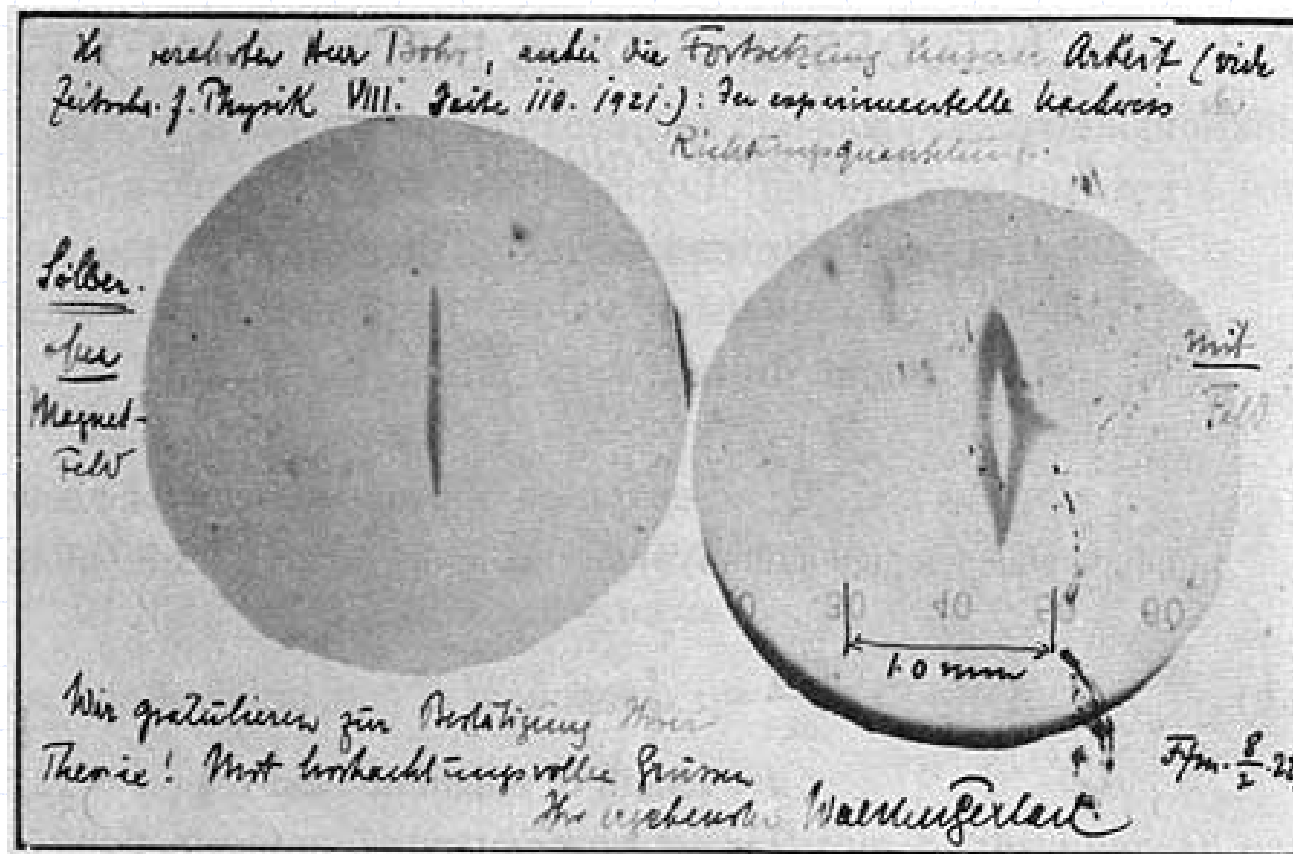 verehrter Herr Bohr, anbei die Fortsetzung unserer Arbeit (vide
Zeitschr. f. Physik VIII. Seite 110. 1921.): Der experimentelle Nachweis
Richtungsquantelung.
Silber
ohne
Magnet-
Feld
mit
Feld
30 40 50 60
1.0 mm
Wir gratulieren zur Bestätigung Ihrer
Theorie! Mit hochachtungsvollen Grüssen
Ihr ergebenster Walther Gerlach
Ffm. 8/2. 22